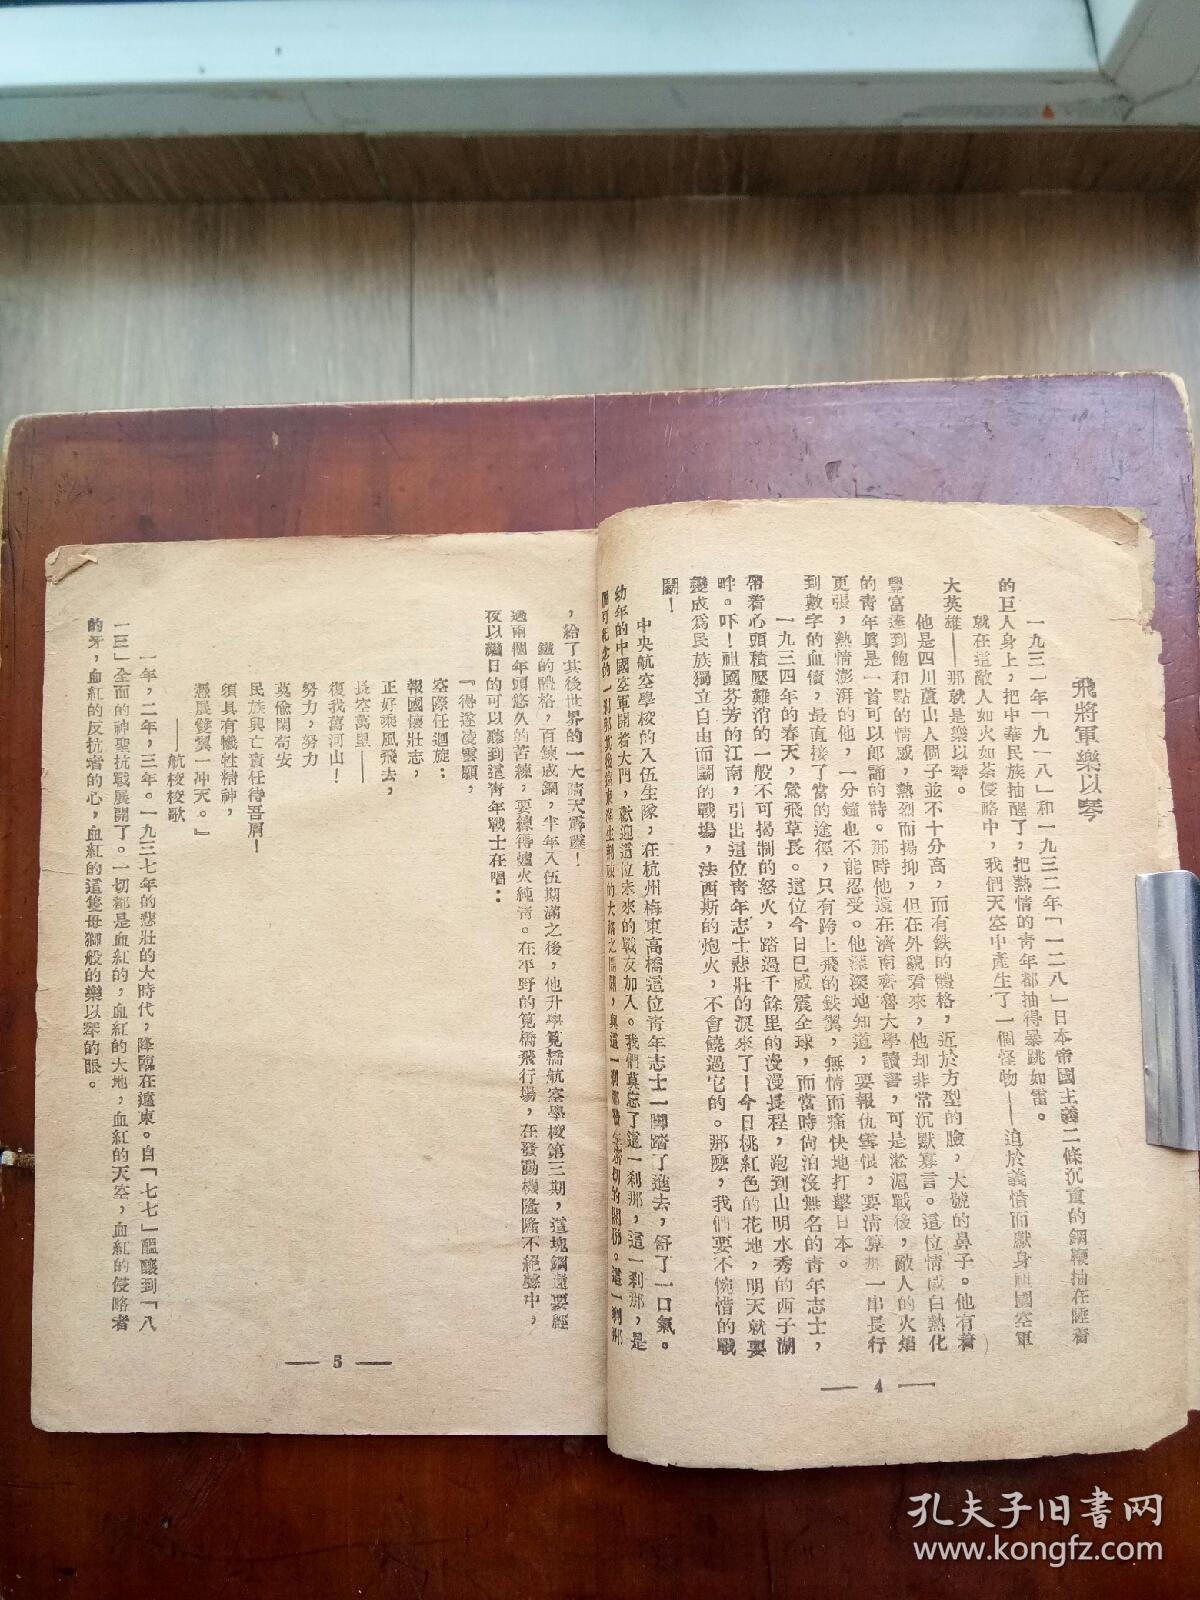 飛將軍樂以琴
一九三一年「九一八」和一九三二年「一二八」日本帝國主義二條沉重的鋼鞭抽在睡着
的巨人身上，把中華民族抽醒了，把熱情的青年都抽得暴跳如雷。
就在這敵人如火如荼侵略中，我們天空中產生了一個怪物——迫於義憤而獻身祖國空軍
大英雄——那就是樂以琴。
他是四川蘆山人個子並不十分高，而有鉄的體格，近於方型的臉，大號的鼻子。他有着
豐富達到飽和點的情感，熱烈而揚抑，但在外貌看來，他却非常沉默寡言。這位情感白熱化
的青年眞是一首可以郎誦的詩。那時他還在濟南齊魯大學讀書，可是淞滬戰後，敵人的火焰
更張，熱情澎湃的他，一分鐘也不能忍受。他深深地知道，要報仇雪恨，要清算那一串長行
到數字的血債，最直接了當的途徑，只有跨上飛的鉄翼，無情而痛快地打擊日本。
一九三四年的春天，鶯飛草長。這位今日已威震全球，而當時尙泊沒無名的青年志士，
帶着心頭積壓難消的一般不可揭制的怒火，踏過千餘里的漫漫長程，跑到山明水秀的西子湖
畔。吓！祖國芬芳的江南，引出這位青年志士悲壯的淚來了！今日桃紅色的花地，明天就要
變成爲民族獨立自由而鬭的戰場，法西斯的炮火，不會饒過它的。那麽，我們要不惋惜的戰
鬭！
中央航空學校的入伍生隊，在杭州梅東高橋這位青年志士一脚踏了進去，舒了一口氣。
幼年的中國空軍開着大門，歡迎這位未來的戰友加入。我們莫忘了這一刹那，這一刹那，是
個可紀念的一刹那其後遠東
，給了其後世界的一大晴天霹靂！
鐵的體格，百鍊成鋼，半年入伍期滿之後，他升學筧橋航空學校第三期，這塊鋼還要經
過兩個年頭悠久的苦練，要練得爐火純青。在平野的筧橋飛行場，在發動機隆隆不絕聲中，
夜以繼日的可以聽到這青年戰士在唱：
『得遂凌雲願，
空際任迴旋；
報國懷壯志，
正好乘風飛去，
長空萬里——
復我舊河山！
努力，努力
莫偸閑苟安
民族興亡責任待吾肩！
須具有犧牲精神，
憑展雙翼一冲天。』
——航校校歌
一年，二年，三年。一九三七年的悲壯的大時代，降臨在遠東。自「七七」醞釀到「八
一三」全面的神聖抗戰展開了。一切都是血紅的，血紅的大地，血紅的天空，血紅的侵略者
的牙，血紅的反抗者的心，血紅的這隻母獅般的樂以琴的眼。
— 4 —
— 5 —
孔夫子旧书网
www.kongfz.com